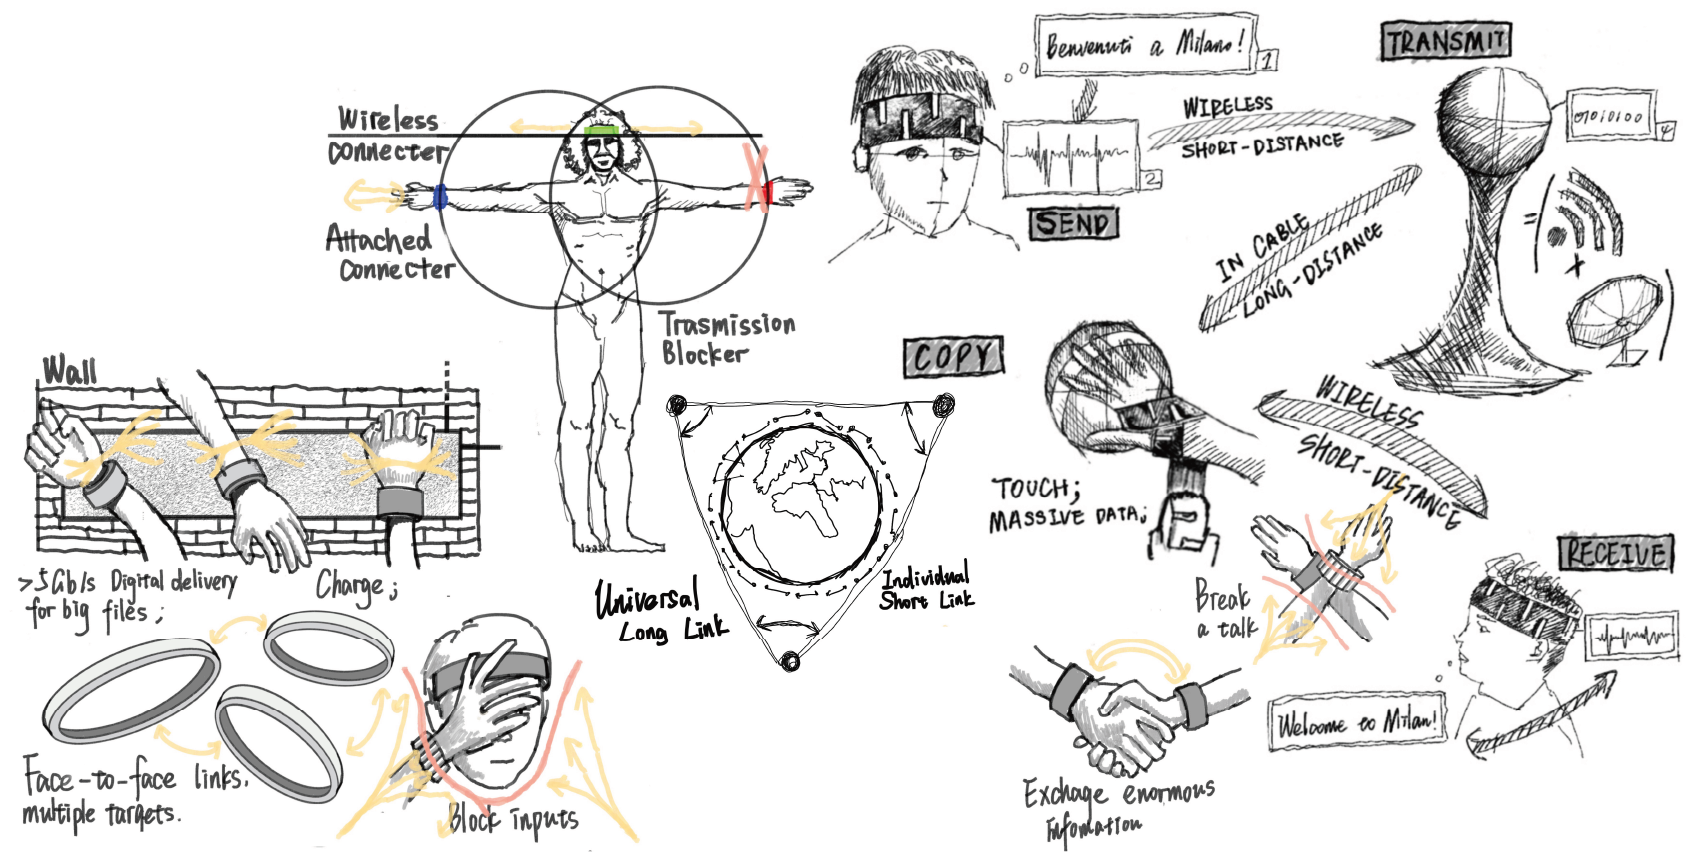 Wireless
Connecter
Attached
Connecter
Trasmission
Blocker
Wall
>5Gb/s Digital delivery
for big files;
Charge;
Face-to-face links.
multiple targets.
Block inputs
Universal
Long Link
Individual
Short Link
Benvenuti a Milano!
1
2
SEND
WIRELESS
SHORT-DISTANCE
TRANSMIT
01010100
IN CABLE
LONG-DISTANCE
=
+
COPY
TOUCH;
MASSIVE DATA;
WIRELESS
SHORT-DISTANCE
Break
a talk
RECEIVE
Welcome to Milan!
Exchage enormous
Infomation